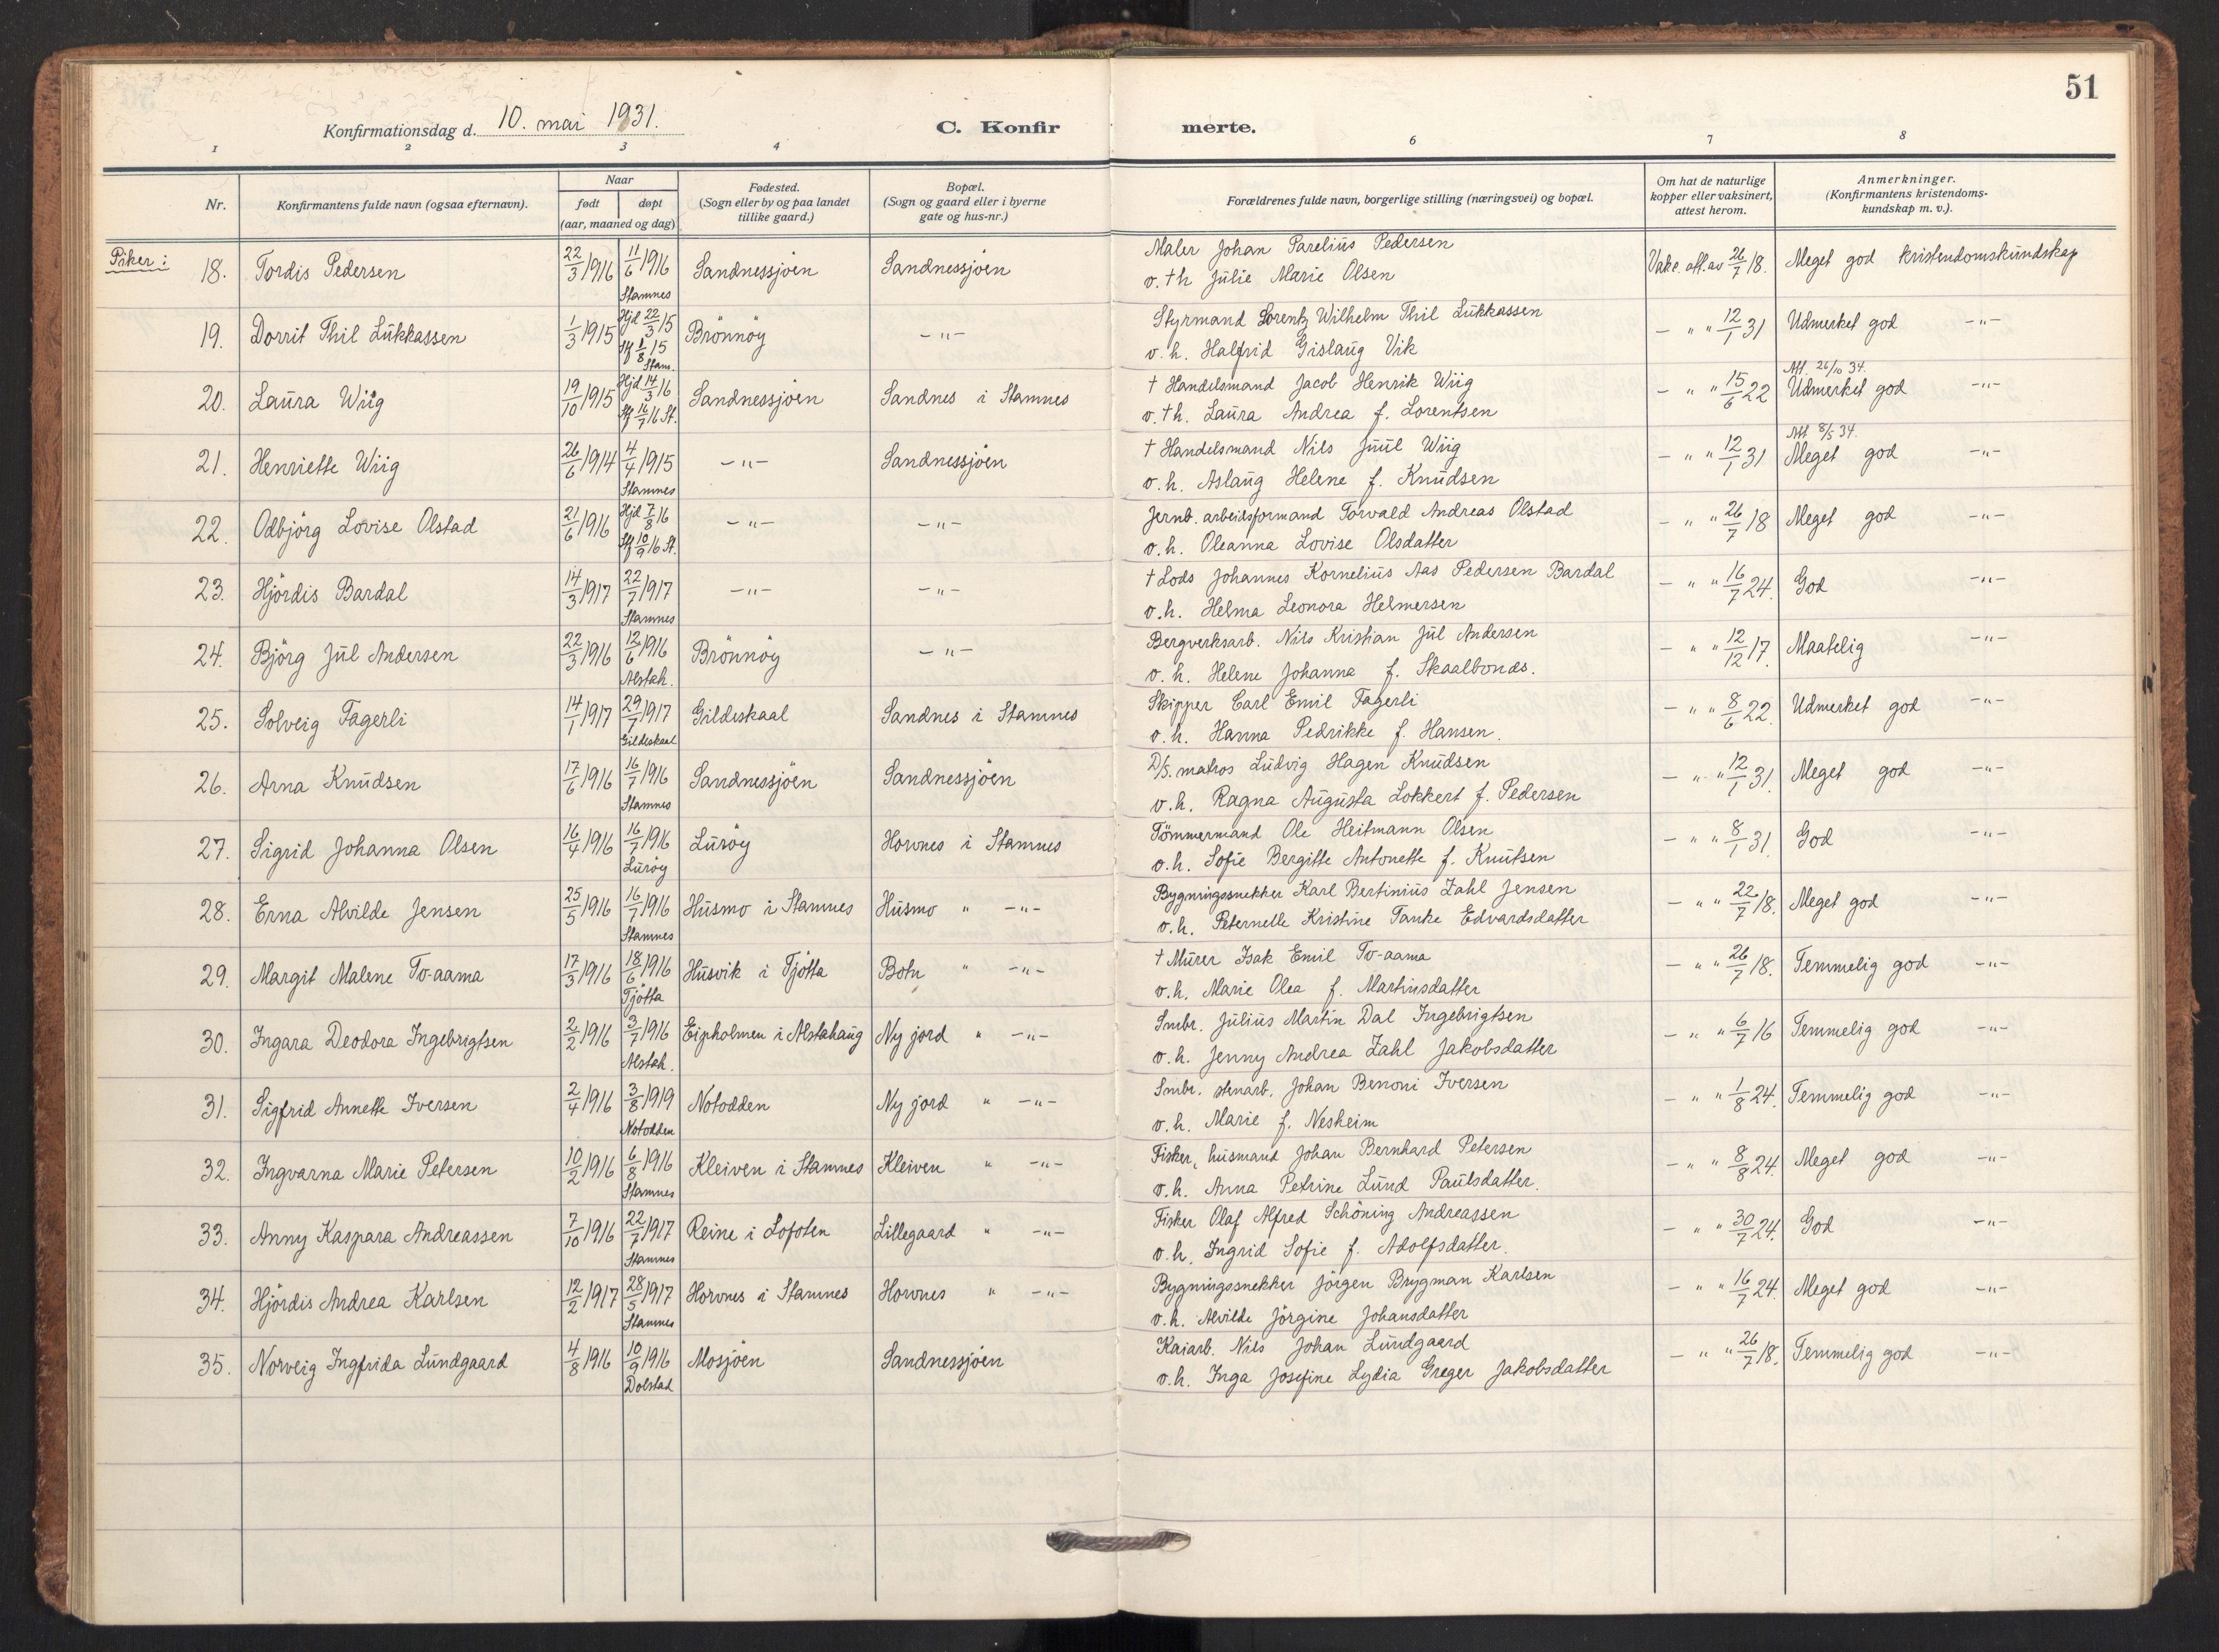 51
Konfirmationsdag d. 10. mai 1931. C. Konfirmerte.
1 2 3 4 6 7 8
Nr. Konfirmantens fulde navn (ogsaa efternavn). Naar født døpt (aar, maaned og dag) Fødested. (Sogn eller by og paa landet tillike gaard.) Bopæl. (Sogn og gaard eller i byerne gate og hus-nr.) Forældrenes fulde navn, borgerlige stilling (næringsvei) og bopæl. Om hat de naturlige kopper eller vaksinert, attest herom. Anmerkninger. (Konfirmantens kristendomskundskap m. v.).
Piker:
18. Tordis Pedersen 22/3 1916 11/6 1916 Stamnes Sandnessjøen Sandnessjøen Maler Johan Parelius Pedersen Vakc. att. av 26/7 18. Meget god kristendomskundskap
o. † h Julie Marie Olsen
19. Dorrit Thil Lukkassen 1/3 1915 Hjd 22/3 15 Stf 1/8 15 Stam. Brönnöy -"- Styrmand Lorentz Wilhelm Thil Lukkassen - " " 12/1 31 Udmerket god -"-
o. h. Halfrid Gislaug Vik
20. Laura Wiig 19/10 1915 Hjd 14/3 16 Stf 16/7 16 St. Sandnessjøen Sandnes i Stamnes † Handelsmand Jacob Henrik Wiig - " " 15/6 22 Att. 26/10 34. Udmerket god -"-
o. † h. Laura Andrea f. Lorentsen
21. Henriette Wiig 26/6 1914 4/4 1915 Stamnes -"- Sandnessjøen † Handelsmand Nils Juul Wiig - " " 12/1 31 Att 8/5 34. Meget god -"-
o. h. Aslaug Helene f. Knudsen
22. Odbjörg Lovise Olstad 21/6 1916 Hjd 7/8 16 Stf 10/9 16 St. -"- -"- Jernb. arbeidsformand Torvald Andreas Olstad - " " 26/7 18 Meget god -"-
o. h. Oleanna Lovise Olsdatter
23. Hjördis Bardal 14/3 1917 22/7 1917 Stamnes -"- -"- † Lods Johannes Kornelius Aas Pedersen Bardal - " " 16/7 24. God -"-
o. h. Helma Leonora Helmersen
24. Björg Jul Andersen 22/3 1916 12/6 1916 Alstah. Brönnöy -"- Bergverksarb. Nils Kristian Jul Andersen - " " 12/12 17. Maatelig -"-
o. h. Helene Johanna f. Skaalbones.
25. Solveig Fagerli 14/1 1917 29/7 1917 Gildeskaal Gildeskaal Sandnes i Stamnes Skipper Carl Emil Fagerli - " " 8/6 22. Udmerket god -"-
o. h. Hanna Pedrikke f. Hansen.
26. Arna Knudsen 17/6 1916 16/7 1916 Stamnes Sandnessjöen Sandnessjöen D/S. matros Ludvig Hagen Knudsen - " " 12/1 31. Meget god -"-
o. h. Ragna Augusta Lokkert f. Pedersen
27. Sigrid Johanna Olsen 16/4 1916 16/7 1916 Luröy Luröy Horvnes i Stamnes Tömmermand Ole Heitmann Olsen - " " 8/1 31. God -"-
o. h. Sofie Bergitte Antonette f. Knutsen
28. Erna Alvilde Jensen 25/5 1916 16/7 1916 Stamnes Husmo i Stamnes Husmo " -"- Bygningssnekker Karl Bertinius Zahl Jensen - " " 22/7 18. Meget god -"-
o. h. Peternelle Kristine Tanke Edvardsdatter
29. Margit Malene To-aama 17/3 1916 18/6 1916 Tjøtta Husvik i Tjötta Botn " -"- † Murer Isak Emil To-aama - " " 26/7 18. Temmelig god -"-
o. h. Marie Olea f. Martinsdatter
30. Ingara Deodora Ingebrigtsen 2/2 1916 3/7 1916 Alstah. i Alstahaug Ny jord " -"- Smbr. Julius Martin Dal Ingebrigtsen - " " 6/7 16 Temmelig god -"-
o. h. Jenny Andrea Zahl Jakobsdatter
31. Sigfrid Annette Iversen 2/4 1916 3/8 1919 Notodden Notodden Ny jord " -"- Smbr. stenarb. Johan Benoni Iversen - " " 1/8 24. Temmelig god -"-
o. h. Marie f. Nesheim
32. Ingvarna Marie Petersen 10/2 1916 6/8 1916 Stamnes Kleiven i Stamnes Kleiven " -"- Fisker, husmand Johan Bernhard Petersen - " " 8/8 24. Meget god -"-
o. h. Anna Petrine Lund Paulsdatter.
33. Anny Kaspara Andreassen 7/10 1916 22/7 1917 Stamnes Reine i Lofoten Lillegaard " -"- Fisker Olaf Alfred Schöning Andreassen - " " 30/7 24. God -"-
o. h. Ingrid Sofie f. Adolfsdatter.
34. Hjördis Andrea Karlsen 12/2 1917 28/5 1917 Stamnes Horvnes i Stamnes Horvnes " -"- Bygningssnekker Jörgen Brygman Karlsen - " " 16/7 24. Meget god -"-
o. h. Alvilde Jörgine Johansdatter
35. Norveig Ingfrida Lundgaard 4/8 1916 10/9 1916 Dolstad Mosjöen Sandnessjöen Kaiarb. Nils Johan Lundgaard - " " 26/7 18. Temmelig god -"-
o. h. Inga Josefine Lydia Greger Jakobsdatter